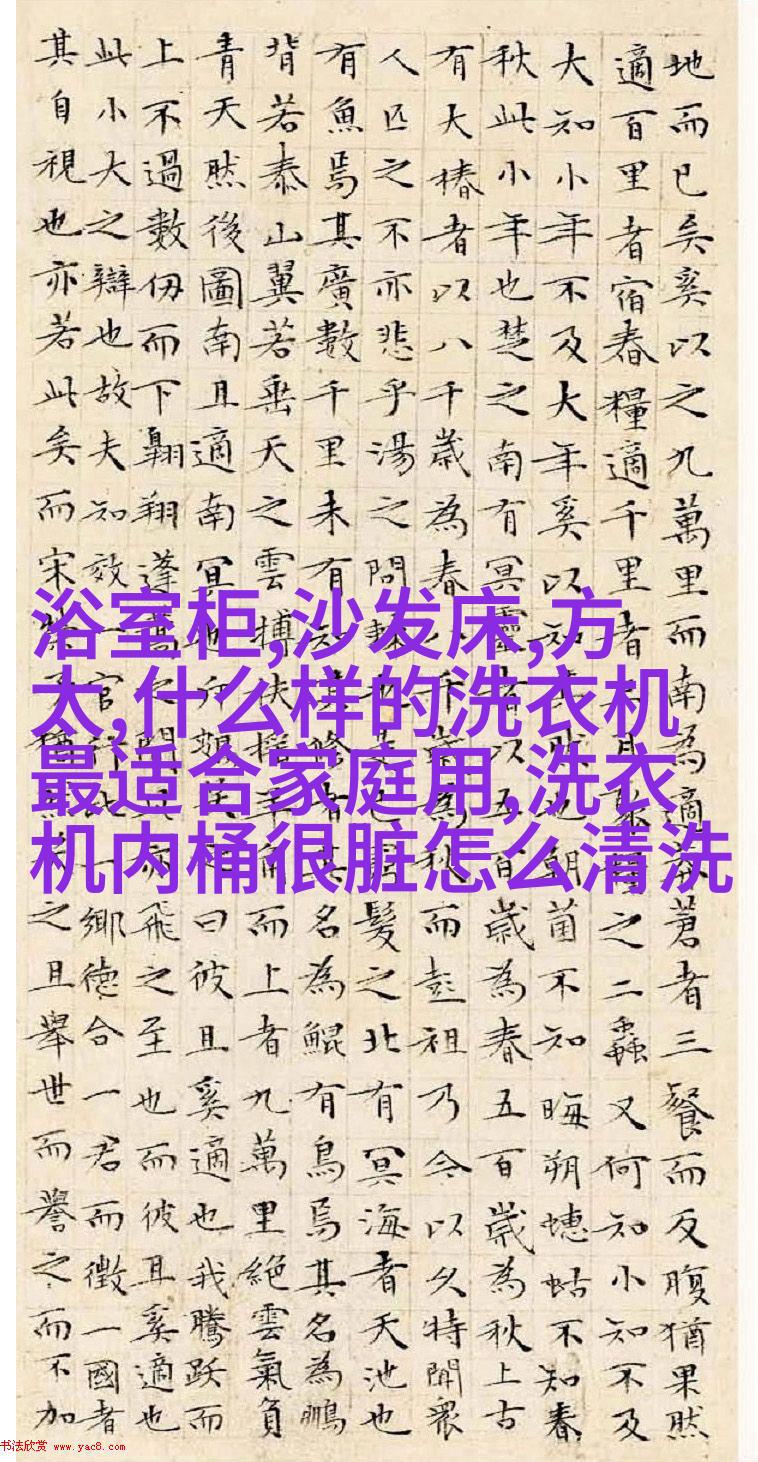 地而已矣奚以之九萬里而南為適莽蒼者三餐而反腹猶果然
適百里者宿舂糧適千里者三月聚糧之二蟲又何知小知不及
大知小年不及大年奚以知其然也朝菌不知晦朔蟪蛄不知春
秋此小年也楚之南有冥靈者以五百歲為春五百歲為秋上古
有大椿者以八千歲為春八千歲為秋而彭祖乃今以久特聞衆
人匹之不亦悲乎湯之問棘也是已窮髮之北有冥海者天池也
有魚焉其廣數千里未有知其脩者其名為鯤有鳥焉其名為鵬
背若泰山翼若垂天之雲搏扶搖羊角而上者九萬里絕雲氣負
青天然後圖南且適南冥也斥鴳笑之曰彼且奚適也我騰躍而
上不過數仞而下翱翔蓬蒿之間此亦飛之至也而彼且奚適也
此小大之辯也故夫知效一官行比一鄉德合一君而徵一國者
其自視也亦若此矣而宋榮子猶然笑之且舉世而譽之而不加
浴室柜,沙发床,方
太,什么样的洗衣机
最适合家庭用,洗衣
机内桶很脏怎么清洗
书法欣赏 www.yac8.com